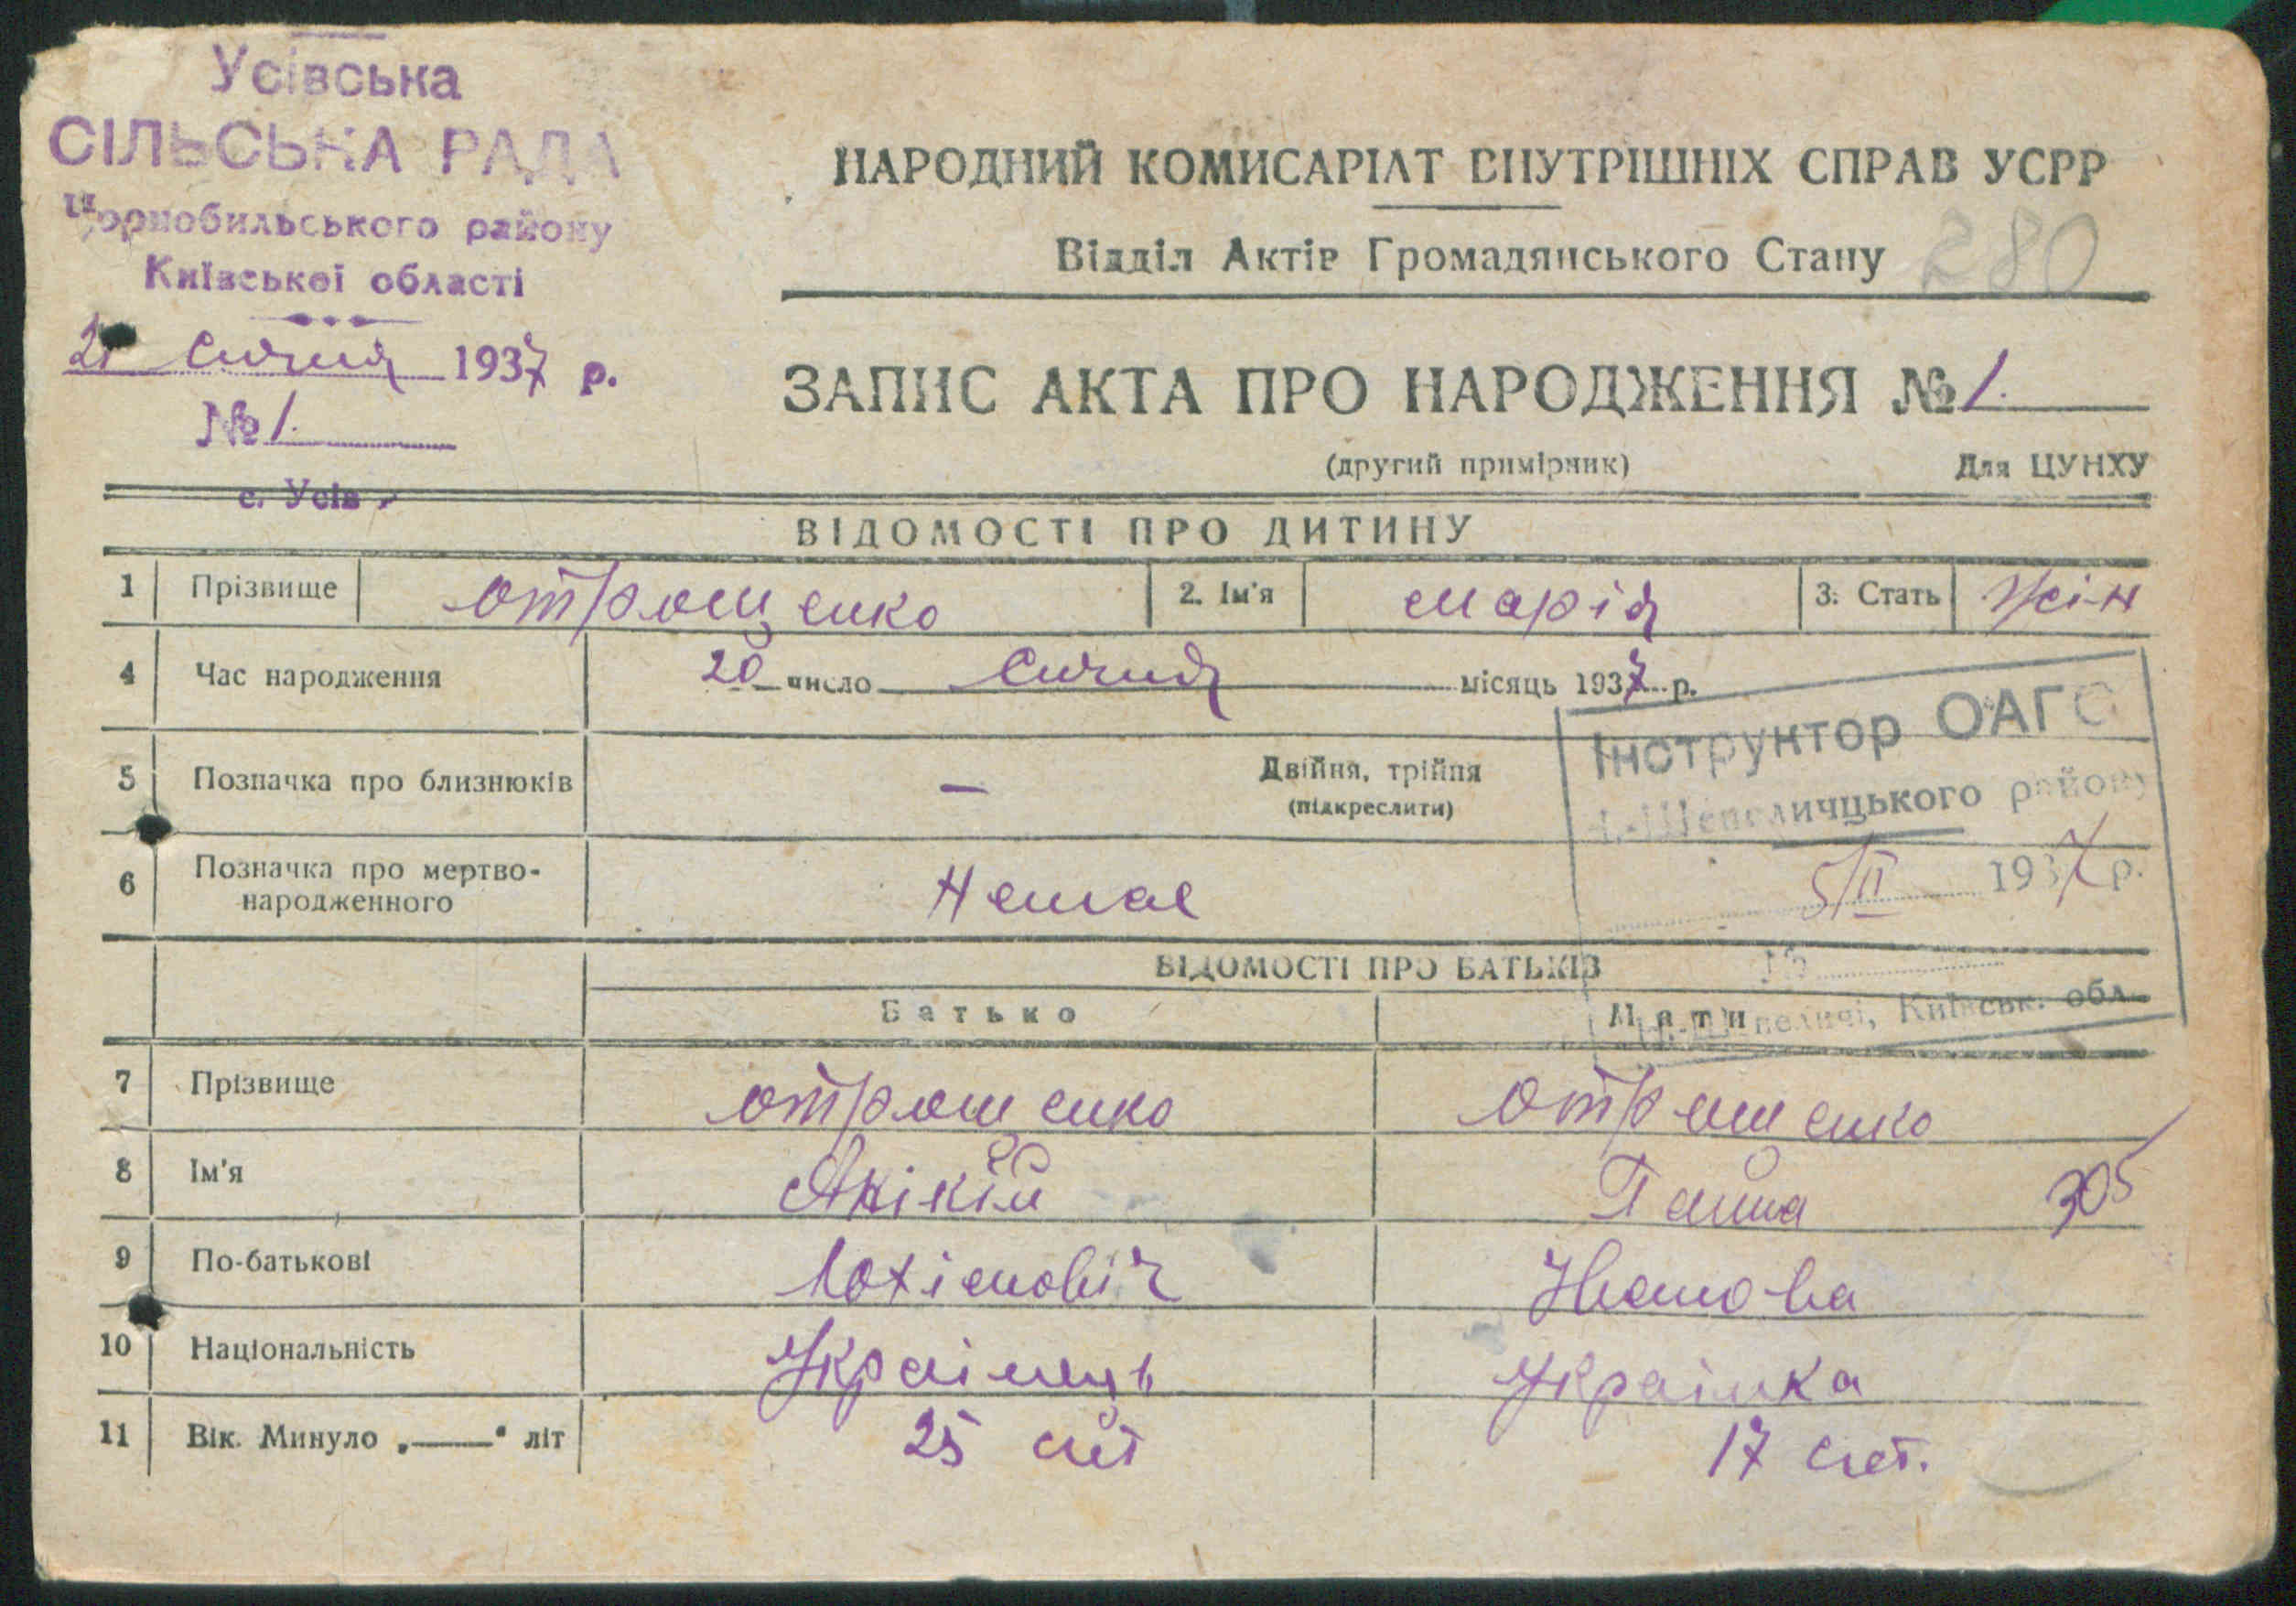 Усівська
СІЛЬСЬКА РАДА
Чорнобильського району
Київської області
21 Січня 1937 р.
№ 1.
с. Усів
НАРОДНИЙ КОМИСАРІАТ ВНУТРІШНІХ СПРАВ УСРР
Відділ Актів Громадянського Стану 280
ЗАПИС АКТА ПРО НАРОДЖЕННЯ № 1.
(другий примірник) Для ЦУНХУ
ВІДОМОСТІ ПРО ДИТИНУ
1 Прізвище Отрощенко 2. Ім'я Марія 3. Стать жін
4 Час народження 20 число Січня місяць 1937 р.
Інструктор ОАГС
5 Позначка про близнюків — Двійня, трійня
(підкреслити)
Н.-Шепеличцького району
6 Позначка про мертво-
народженного
Немає
5/II 1937 р.
№
ВІДОМОСТІ ПРО БАТЬКІВ
Батько Мати
Н. Шепеличі, Київськ. обл.
7 Прізвище Отрощенко Отрощенко
8 Ім'я Анікій Ганна 305
9 По-батькові Івановна
10 Національність Українець Українка
11 Вік. Минуло „——“ літ 25 літ 17 літ.